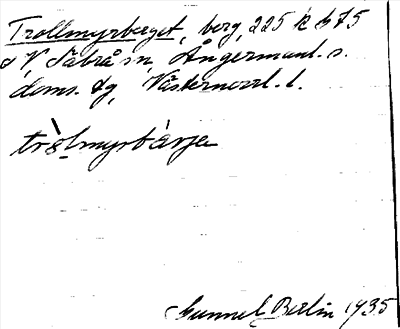 Trollmyrberget, berg, 225 k b 75
d V, Säbrå sn, Ångermanl. s.
doms. dg, Västernorrl. l.
tròlmyrbàrje
Gunnel Berlin 1935